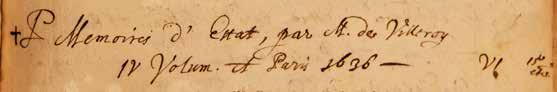 ✝ P Memoires d' Estat, par M. de Villeroy
IV Volum. A Paris 1636 — VI